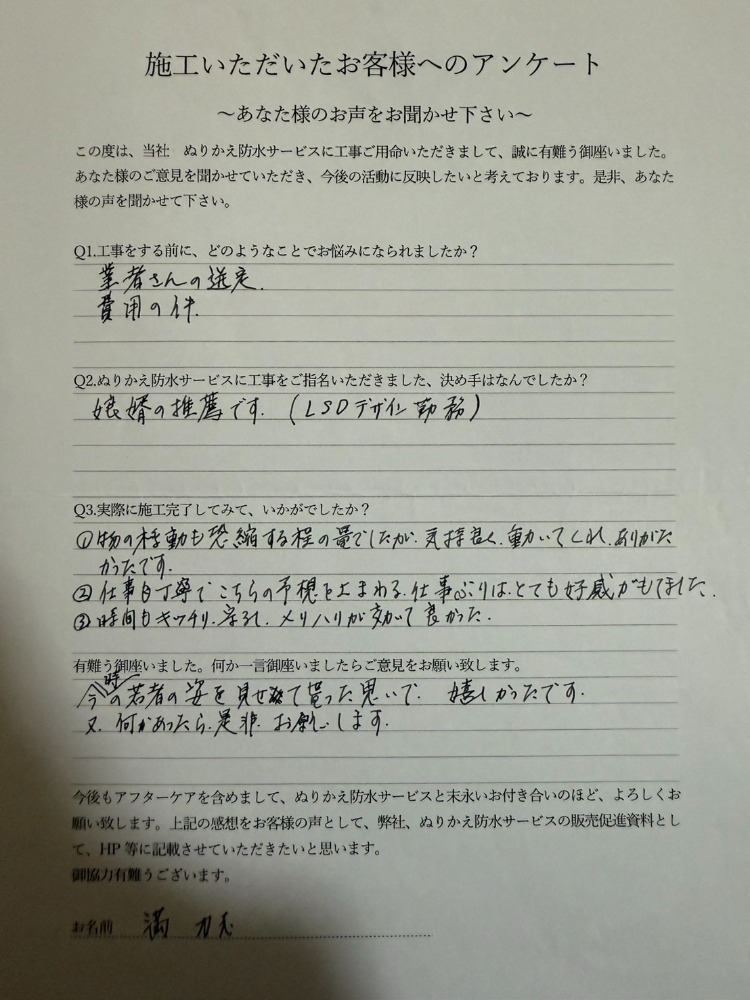 施工いただいたお客様へのアンケート
～あなた様のお声をお聞かせ下さい～
この度は、当社　ぬりかえ防水サービスに工事ご用命いただきまして、誠に有難う御座いました。
あなた様のご意見を聞かせていただき、今後の活動に反映したいと考えております。是非、あなた
様の声を聞かせて下さい。
Q1.工事をする前に、どのようなことでお悩みになられましたか？
業者さんの選定.
費用の件.
Q2.ぬりかえ防水サービスに工事をご指名いただきました、決め手はなんでしたか？
娘婿の推薦です.（LSDデザイン勤務）
Q3.実際に施工完了してみて、いかがでしたか？
①物の移動も恐縮する程の量でしたが.気持良く.動いてくれ.ありがた
かったです.
②仕事も丁寧でこちらの予想を上まわる.仕事ぶりは.とても好感がもてました.
③時間もキッチリ.守るし.メリハリが効いて良かった.
有難う御座いました。何か一言御座いましたらご意見をお願い致します。
今時の若者の姿を見せて貰った思いで.嬉しかったです.
又.何かあったら.是非.お願いします.
今後もアフターケアを含めまして、ぬりかえ防水サービスと末永いお付き合いのほど、よろしくお
願い致します。上記の感想をお客様の声として、弊社、ぬりかえ防水サービスの販売促進資料とし
て、HP 等に記載させていただきたいと思います。
御協力有難うございます。
お名前　満